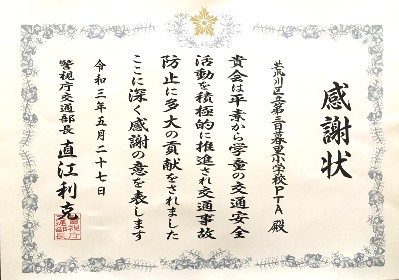 感謝状
荒川区立第三日暮里小学校PTA 殿
貴会は平素から学童の交通安全
活動を積極的に推進され交通事故
防止に多大の貢献をされました
ここに深く感謝の意を表します
令和三年五月二十七日
警視庁交通部長 直江利克